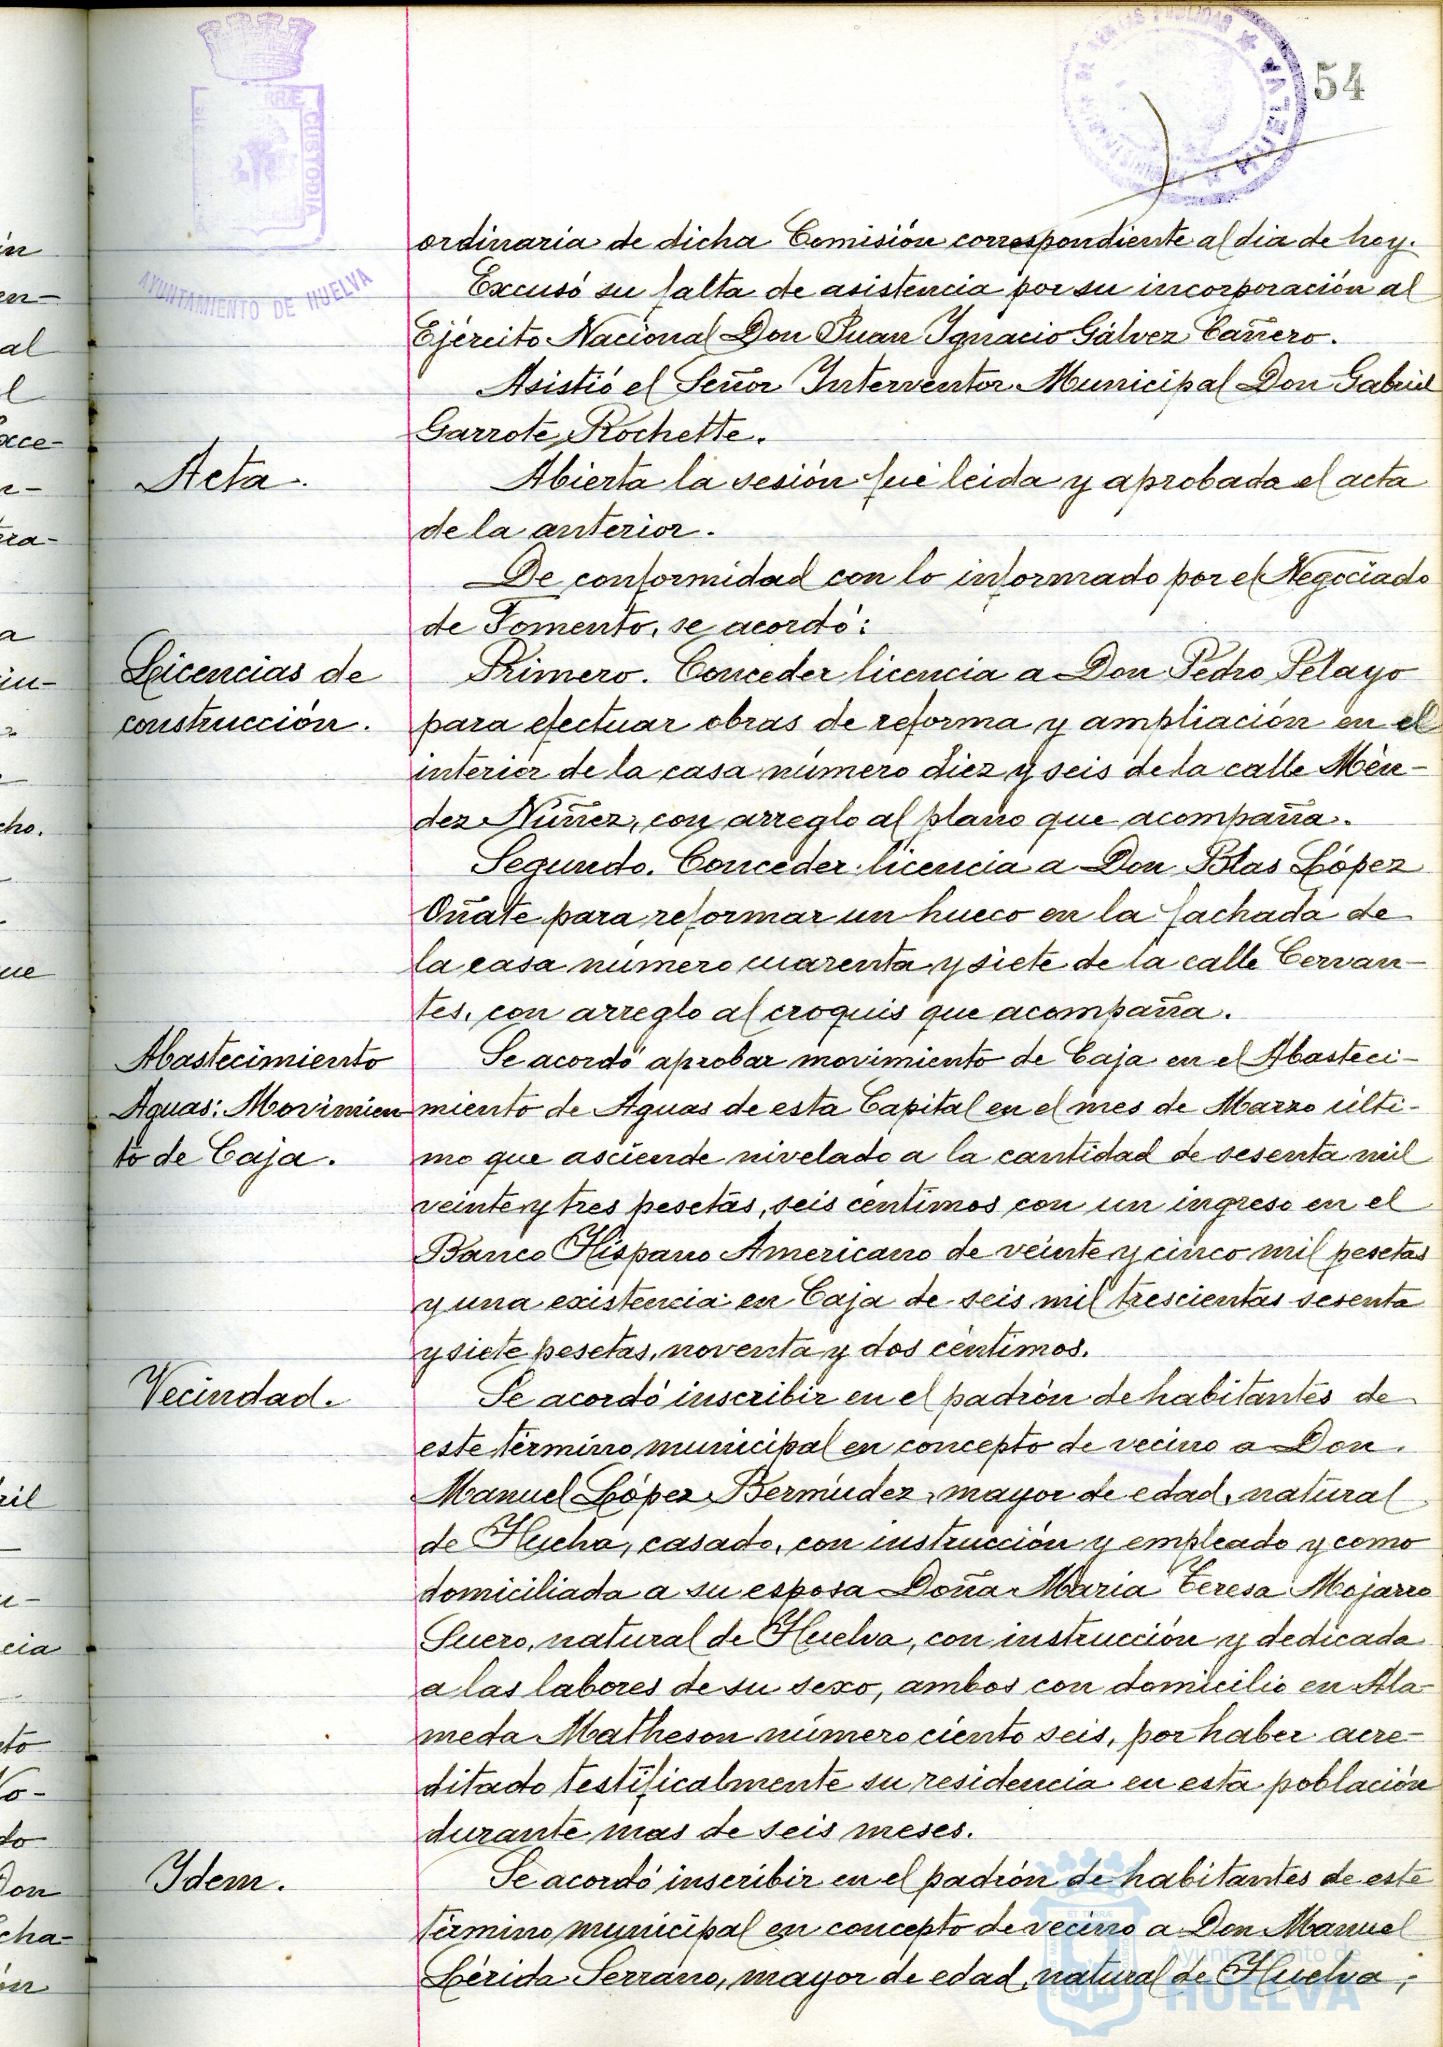 54
AYUNTAMIENTO DE HUELVA
CUSTODIA
HUELVA
ordinaria de dicha Comisión correspondiente al dia de hoy.
Excusó su falta de asistencia por su incorporación al
Ejército Nacional Don Juan Ignacio Gálvez Cañero.
Asistió el Señor Interventor Municipal Don Gabriel
Garrote Rochette.
Acta.
Abierta la sesión fué leida y aprobada el acta
de la anterior.
De conformidad con lo informado por el Negociado
de Fomento, se acordó:
Licencias de
construcción.
Primero. Conceder licencia a Don Pedro Pelayo
para efectuar obras de reforma y ampliación en el
interior de la casa número diez y seis de la calle Mén-
dez Núñez, con arreglo al plano que acompaña.
Segundo. Conceder licencia a Don Blas López
Oñate para reformar un hueco en la fachada de
la casa número cuarenta y siete de la calle Cervan-
tes, con arreglo al croquis que acompaña.
Abastecimiento
Aguas: Movimien
to de Caja.
Se acordó aprobar movimiento de Caja en el Abasteci-
miento de Aguas de esta Capital en el mes de Marzo últi-
mo que asciende nivelado a la cantidad de sesenta mil
veinte y tres pesetas, seis céntimos con un ingreso en el
Banco Hispano Americano de veinte y cinco mil pesetas
y una existencia en Caja de seis mil trescientas sesenta
y siete pesetas, noventa y dos céntimos.
Vecindad.
Se acordó inscribir en el padrón de habitantes de
este término municipal en concepto de vecino a Don
Manuel López Bermúdez, mayor de edad, natural
de Huelva, casado, con instrucción y empleado y como
domiciliada a su esposa Doña Maria Teresa Mojarro
Suero, natural de Huelva, con instrucción y dedicada
a las labores de su sexo, ambos con domicilio en Ala-
meda Matheson número ciento seis, por haber acre-
ditado testificalmente su residencia en esta población
durante mas de seis meses.
Idem.
Se acordó inscribir en el padrón de habitantes de este
término municipal en concepto de vecino a Don Manuel
Lérida Serrano, mayor de edad, natural de Huelva,
Ayuntamiento de
HUELVA